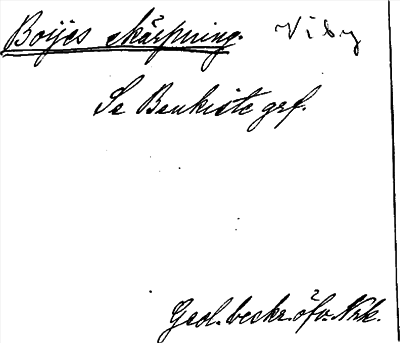 Boijes skärpning. Viby
Se Benkiste grf.
Geol. beskr. öfv. Nrk.